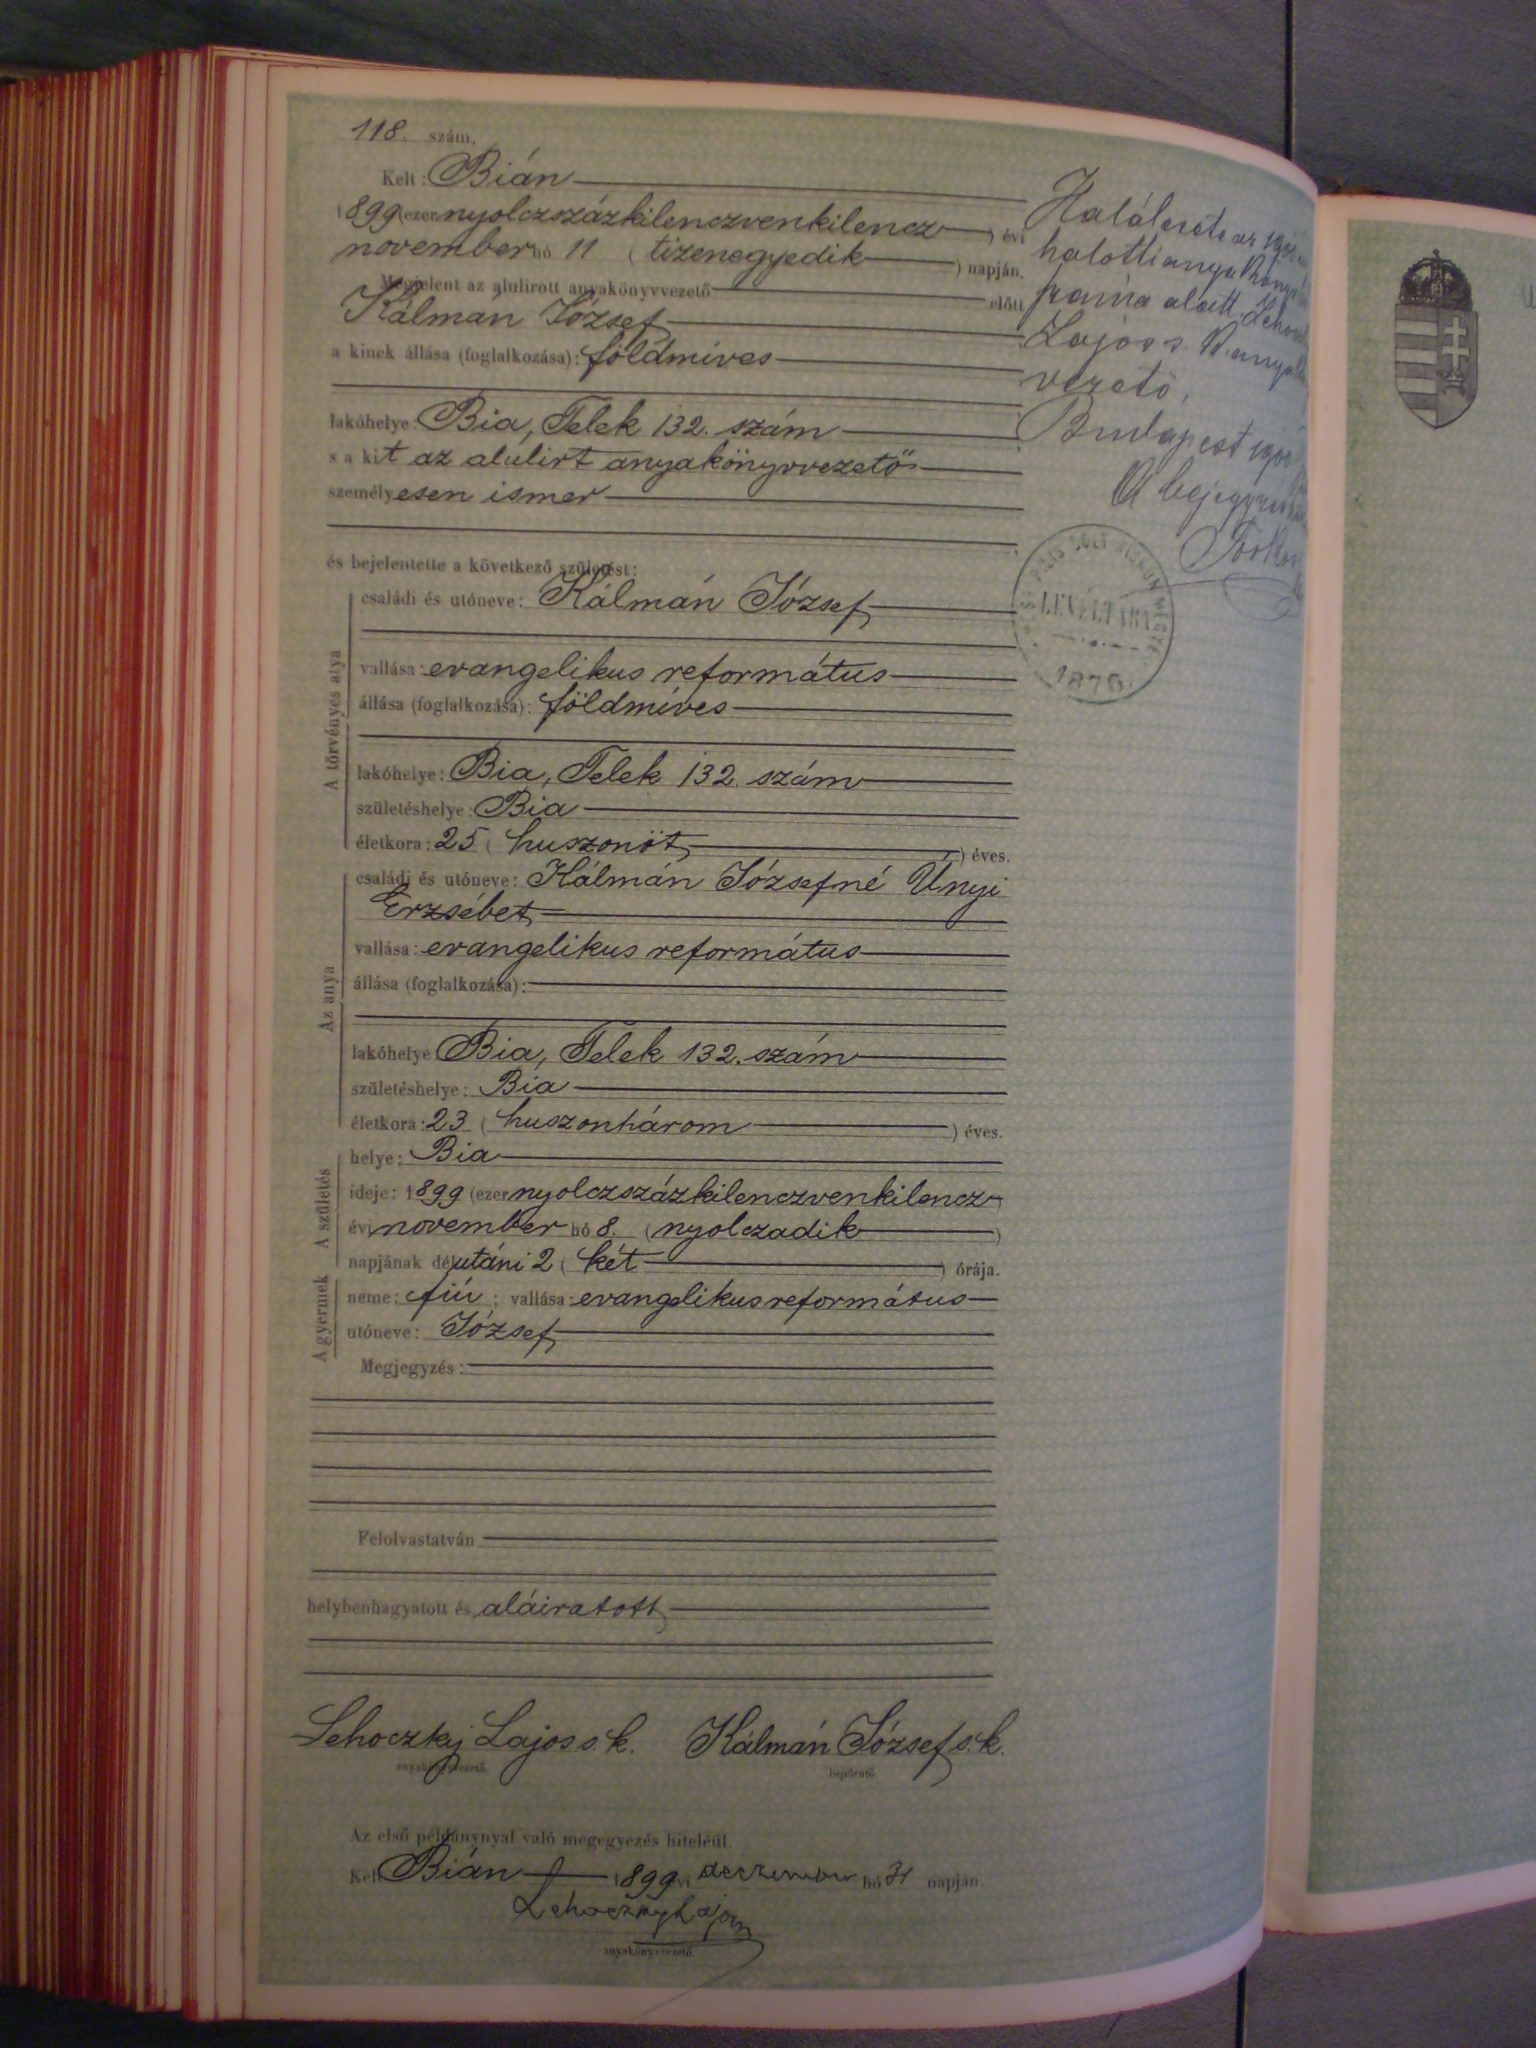 118. szám.
Kelt: Bián
1899 (ezer nyolczszázkilenczvenkilencz) évi
november hó 11 (tizenegyedik) napján.
Megjelent az alulirott anyakönyvvezető előtt
Kálmán József
a kinek állása (foglalkozása): földmíves
lakóhelye: Bia, Telek 132. szám
s a kit az alulirt anyakönyvvezető
személyesen ismer
és bejelentette a következő születést:
A törvényes atya
családi és utóneve: Kálmán József
vallása: evangelikus református
állása (foglalkozása): földmíves
lakóhelye: Bia, Telek 132. szám
születéshelye: Bia
életkora: 25 (huszonöt) éves.
Az anya
családi és utóneve: Kálmán Józsefné Únyi
Erzsébet
vallása: evangelikus református
állása (foglalkozása):
lakóhelye: Bia, Telek 132. szám
születéshelye: Bia
életkora: 23 (huszonhárom) éves.
A születés
helye: Bia
ideje: 1899 (ezer nyolczszázkilenczvenkilencz)
évi november hó 8. (nyolczadik)
napjának délutáni 2 (két) órája.
A gyermek
neme: fiú; vallása: evangelikus református
utóneve: József
Megjegyzés:
Felolvastatván
helybenhagyatott és aláiratott
Lehoczky Lajos s. k. Kálmán József s. k.
anyakönyvvezető. bejelentő
Az első példánynyal való megegyezés hiteléül.
Kelt Bián 1899 évi deczember hó 31 napján.
Lehoczky Lajos
anyakönyvvezető.
Halálesete az
halotti anya
alatt.
Lajos s. k. anya
vezető,
Budapest
A bejegyzés
PEST PILIS SOLT KISKUN MEGYE
LEVÉLTÁRA
1876.